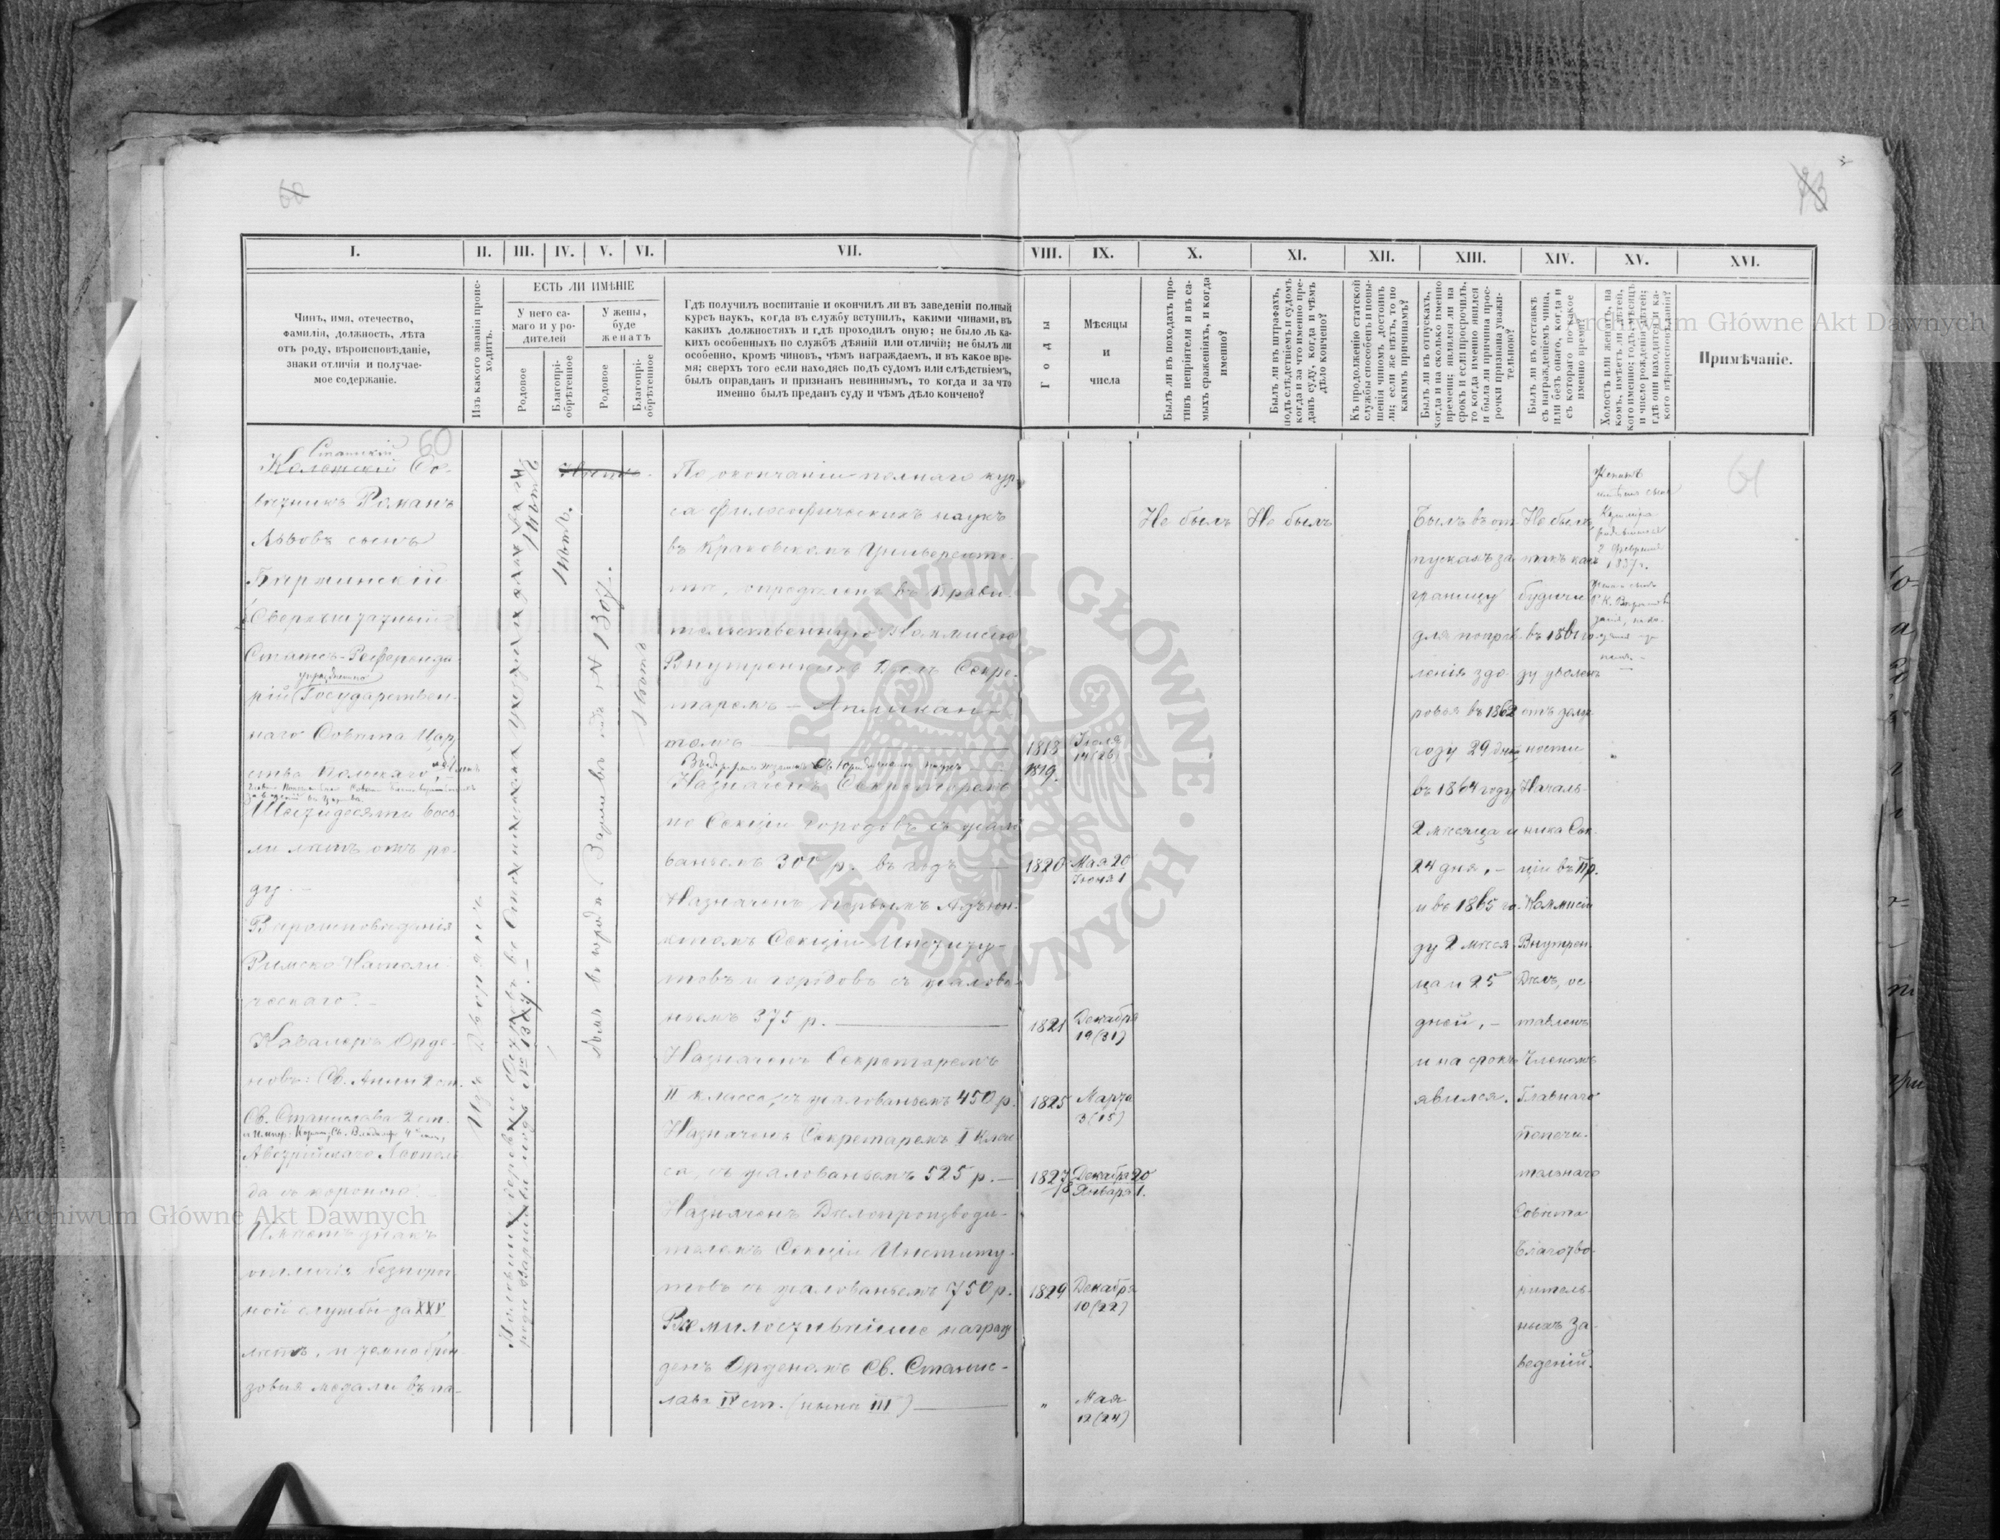 60
73
I.
II.
III.
IV.
V.
VI.
VII.
VIII.
IX.
X.
XI.
XII.
XIII.
XIV.
XV.
XVI.
Чинъ, имя, отечество,
фамилія, должность, лѣта
отъ роду, вѣроисповѣданіе,
знаки отличія и получае-
мое содержаніе.
Изъ какого званія проис-
ходитъ.
ЕСТЬ ЛИ ИМѢНІЕ
У него са-
маго и у ро-
дителей
У жены,
буде
женатъ
Родовое
Благопрі-
обрѣтенное
Родовое
Благопрі-
обрѣтенное
Гдѣ получилъ воспитаніе и окончилъ ли въ заведеніи полный
курсъ наукъ, когда въ службу вступилъ, какими чинами, въ
какихъ должностяхъ и гдѣ проходилъ оную; не было ль ка-
кихъ особенныхъ по службѣ дѣяній или отличій; не былъ ли
особенно, кромѣ чиновъ, чѣмъ награждаемъ, и въ какое вре-
мя; сверхъ того если находясь подъ судомъ или слѣдствіемъ,
былъ оправданъ и признанъ невиннымъ, то когда и за что
именно былъ преданъ суду и чѣмъ дѣло кончено?
Годы
Мѣсяцы
и
числа
Былъ ли въ походахъ про-
тивъ непріятеля и въ са-
мыхъ сраженіяхъ, и когда
именно?
Былъ ли въ штрафахъ,
подъ слѣдствіемъ и судомъ
когда и за что именно пре-
данъ суду, когда и чѣмъ
дѣло кончено?
Къ продолженію статской
службы способенъ и повы-
шенія чиномъ достоинъ
ли; если же нѣтъ, то по
какимъ причинамъ?
Былъ ли въ отпускахъ,
когда и на сколько именно
времени; являлся ли на
срокъ и если просрочилъ,
то когда именно явился
и была ли причина прос-
рочки признана уважи-
тельною?
Былъ ли въ отставкѣ
съ награжденіемъ чина,
или безъ онаго, когда и
съ котораго по какое
именно время?
Холостъ или женатъ, на
комъ, имѣетъ ли дѣтей,
кого именно; годъ, мѣсяцъ
и число рожденія дѣтей;
гдѣ они находятся и ка-
кого вѣроисповѣданія?
Примѣчаніе.
Статскій 60
Со-
вѣтникъ Романъ
Львовъ сынъ
Сверхштатный
Статсъ-Референда-
рій Государствен-
наго Совѣта Цар-
ства Польскаго,
Шестидесяти вось-
ми лѣтъ отъ ро-
ду. —
Вѣроисповѣданія
Римско-Католи-
ческаго. —
Кавалеръ Орде-
новъ: Св. Анны 2 ст.
Св. Станислава 2 ст.
Австрійскаго Леополь-
да съ короною.
Имѣетъ знакъ
отличія безпороч-
ной службы за XXV
лѣтъ, и темно брон-
зовыя медали въ па-
Изъ Дворянъ
Нѣтъ.
Нѣтъ
По окончаніи полнаго кур-
са философическихъ наукъ
въ Краковскомъ Университе-
тѣ, опредѣленъ въ Прави-
тельственную Коммисію
Внутреннихъ Дѣлъ Секре-
таремъ — Апликан-
томъ — 1818 Іюля 14 (26)
1819.
Назначенъ Секретаремъ
по Секціи городовъ съ жало-
ваньемъ 300 р. въ годъ — 1820 Мая 20 Іюня 1
Назначенъ Первымъ Адъюн-
ктомъ Секціи Институ-
товъ и городовъ съ жалова-
ньемъ 375 р. — 1821 Декабря 19 (31)
Назначенъ Секретаремъ
II класса, съ жалованьемъ 450 р. 1825 Марта 3 (15)
Назначенъ Секретаремъ I клас-
са, съ жалованьемъ 525 р. — 1827/18 Декабря 20 Января 1.
Назначенъ Дѣлопроизводи-
телемъ Секціи Институ-
товъ съ жалованьемъ 750 р. 1829 Декабря 10 (22)
Всемилостивѣйше награж-
денъ Орденомъ Св. Станис-
лава IV ст. (нынѣ III) — " Мая 12 (24)
Не былъ
Не былъ
Былъ въ от-
пускахъ за
границу
для поправ-
ленія здо-
ровья въ 1862
году 29 дней
въ 1864 году
2 мѣсяца и
24 дня, —
и въ 1865 го-
ду 2 мѣся-
ца и 25
дней, —
и на срокъ
явился.
Не былъ,
такъ какъ
будучи
въ 1861 го-
ду уволенъ
отъ долж-
ности
Началь-
ника Сек-
ціи въ Пр.
Коммисіи
Внутрен.
Дѣлъ, ос-
тавленъ
Членомъ
Главнаго
Попечи-
тельнаго
Совѣта
Благотво-
ритель-
ныхъ За-
веденій.
Женатъ
имѣетъ сына
Казиміра
родившагося
2 Февраля
1837 г.
61
Archiwum Główne Akt Dawnych
Archiwum Główne Akt Dawnych
ARCHIWUM GŁÓWNE · AKT DAWNYCH ·